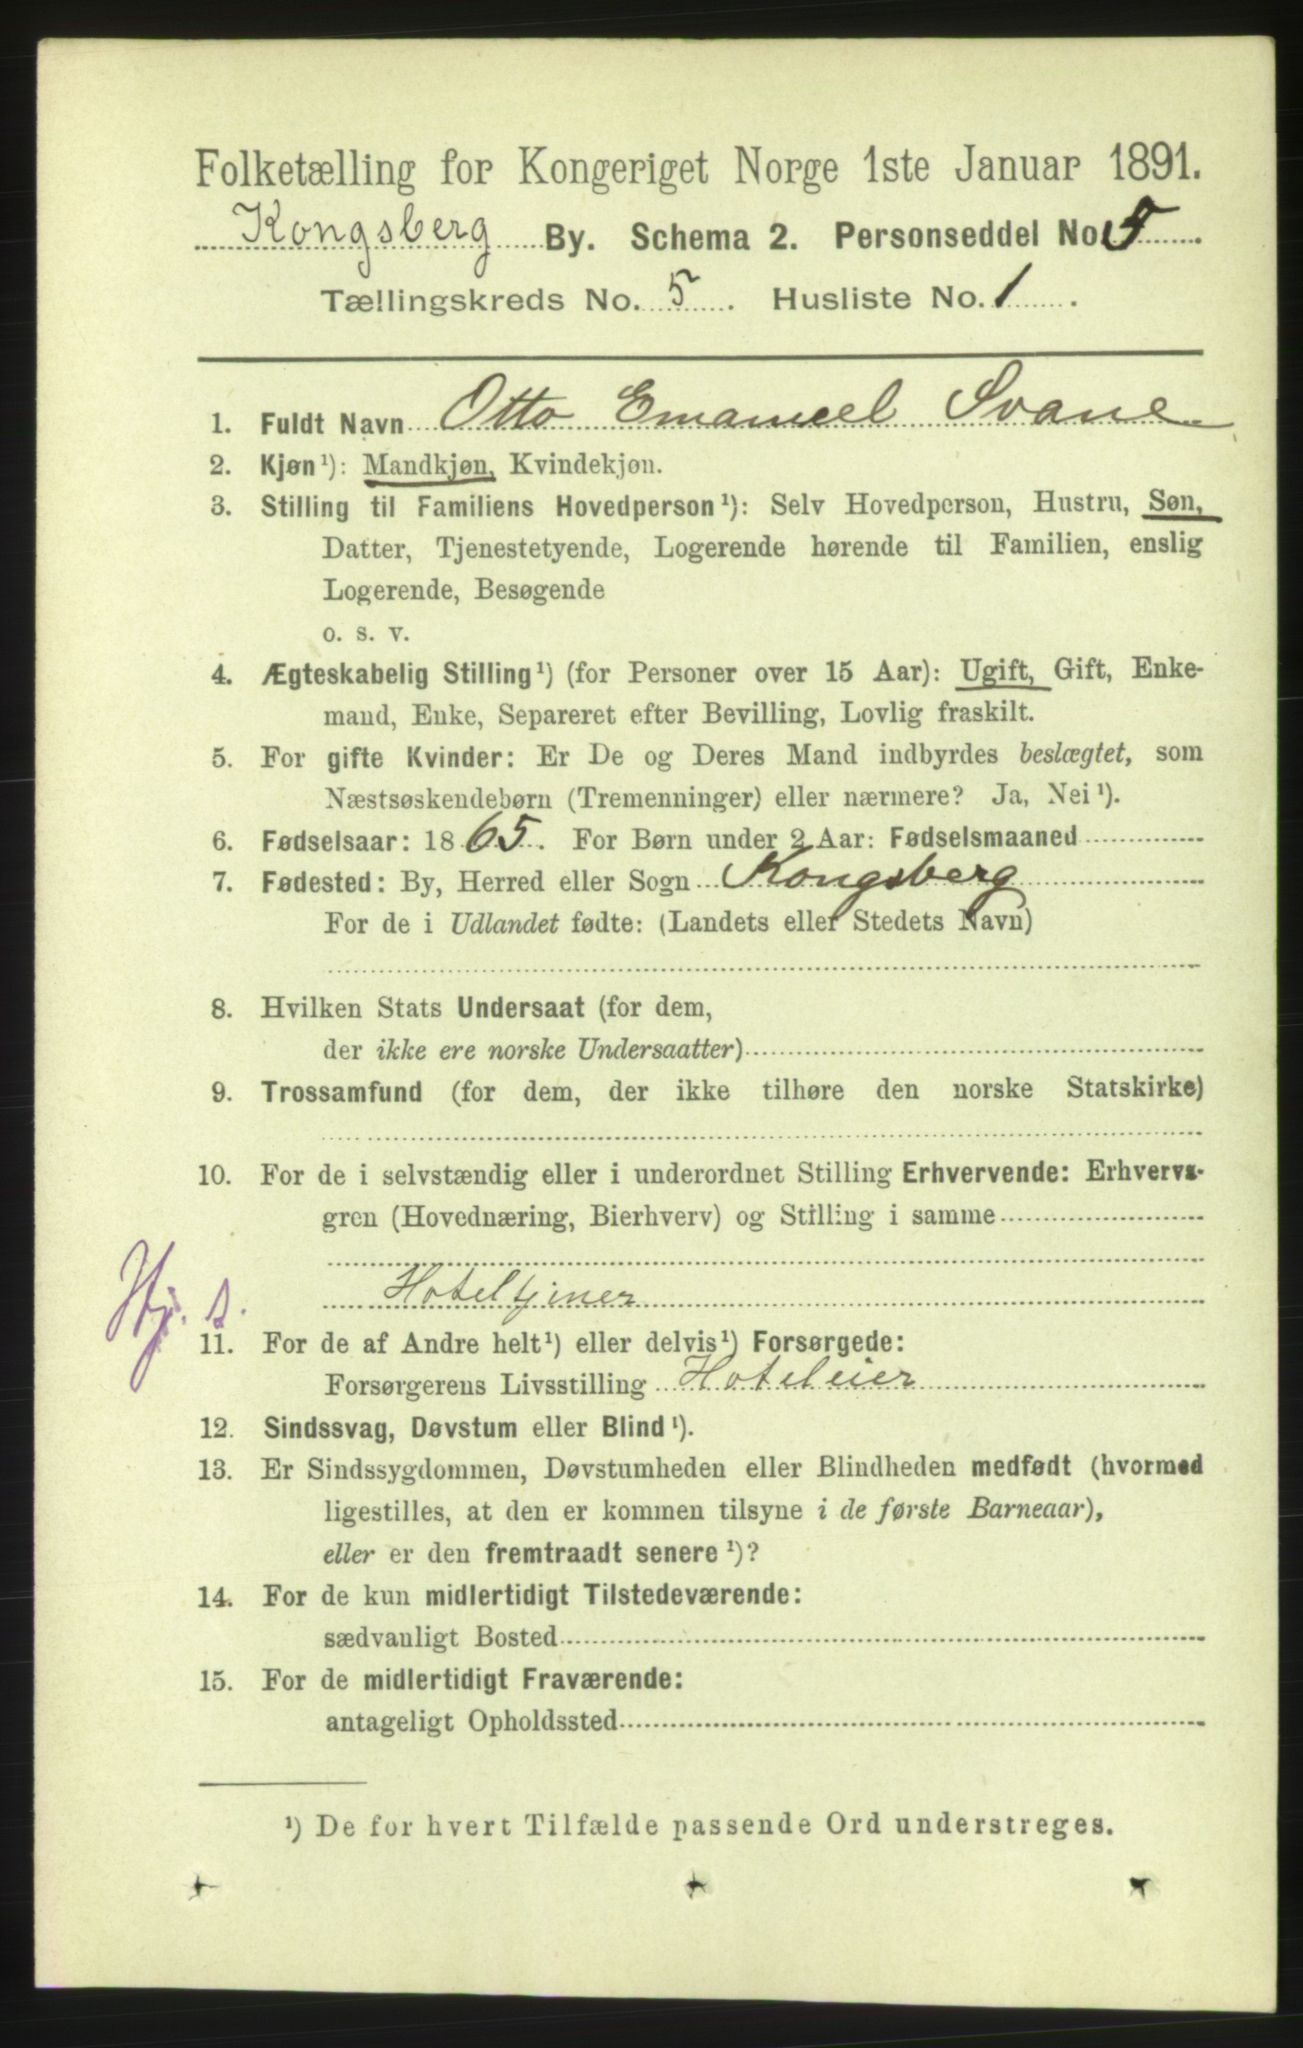 Folketælling for Kongeriget Norge 1ste Januar 1891.
Kongsberg By. Schema 2. Personseddel No. 5.
Tællingskreds No. 5. Husliste No. 1.
1. Fuldt Navn Otto Emanuel Svane
2. Kjøn¹): Mandkjøn, Kvindekjøn.
3. Stilling til Familiens Hovedperson¹): Selv Hovedperson, Hustru, Søn,
Datter, Tjenestetyende, Logerende hørende til Familien, enslig
Logerende, Besøgende
o. s. v.
4. Ægteskabelig Stilling¹) (for Personer over 15 Aar): Ugift, Gift, Enke-
mand, Enke, Separeret efter Bevilling, Lovlig fraskilt.
5. For gifte Kvinder: Er De og Deres Mand indbyrdes beslægtet, som
Næstsøskendebørn (Tremenninger) eller nærmere? Ja, Nei¹).
6. Fødselsaar: 1865. For Børn under 2 Aar: Fødselsmaaned
7. Fødested: By, Herred eller Sogn Kongsberg
For de i Udlandet fødte: (Landets eller Stedets Navn)
8. Hvilken Stats Undersaat (for dem,
der ikke ere norske Undersaatter)
9. Trossamfund (for dem, der ikke tilhøre den norske Statskirke)
10. For de i selvstændig eller i underordnet Stilling Erhvervende: Erhvervs-
gren (Hovednæring, Bierhverv) og Stilling i samme
Hoteltjener
Hj. s.
11. For de af Andre helt¹) eller delvis¹) Forsørgede:
Forsørgerens Livsstilling Hoteleier
12. Sindssvag, Døvstum eller Blind¹).
13. Er Sindssygdommen, Døvstumheden eller Blindheden medfødt (hvormed
ligestilles, at den er kommen tilsyne i de første Barneaar),
eller er den fremtraadt senere¹)?
14. For de kun midlertidigt Tilstedeværende:
sædvanligt Bosted
15. For de midlertidigt Fraværende:
antageligt Opholdssted
¹) De for hvert Tilfælde passende Ord understreges.